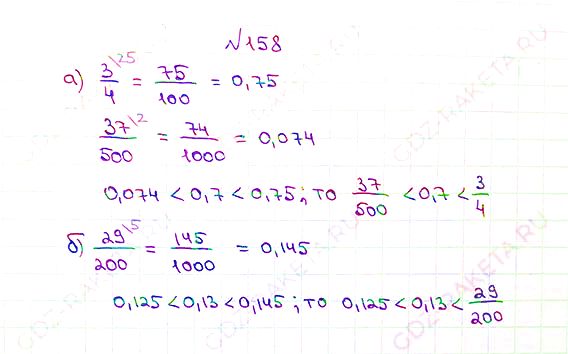 №158
а) 3/4 \25 = 75/100 = 0,75
37/500 \2 = 74/1000 = 0,074
0,074 < 0,7 < 0,75; то 37/500 < 0,7 < 3/4
б) 29/200 \5 = 145/1000 = 0,145
0,125 < 0,13 < 0,145; то 0,125 < 0,13 < 29/200
GDZ-RAKETA.RU
GDZ-RAKETA.RU
GDZ-RAKETA.RU
GDZ-RAKETA.RU